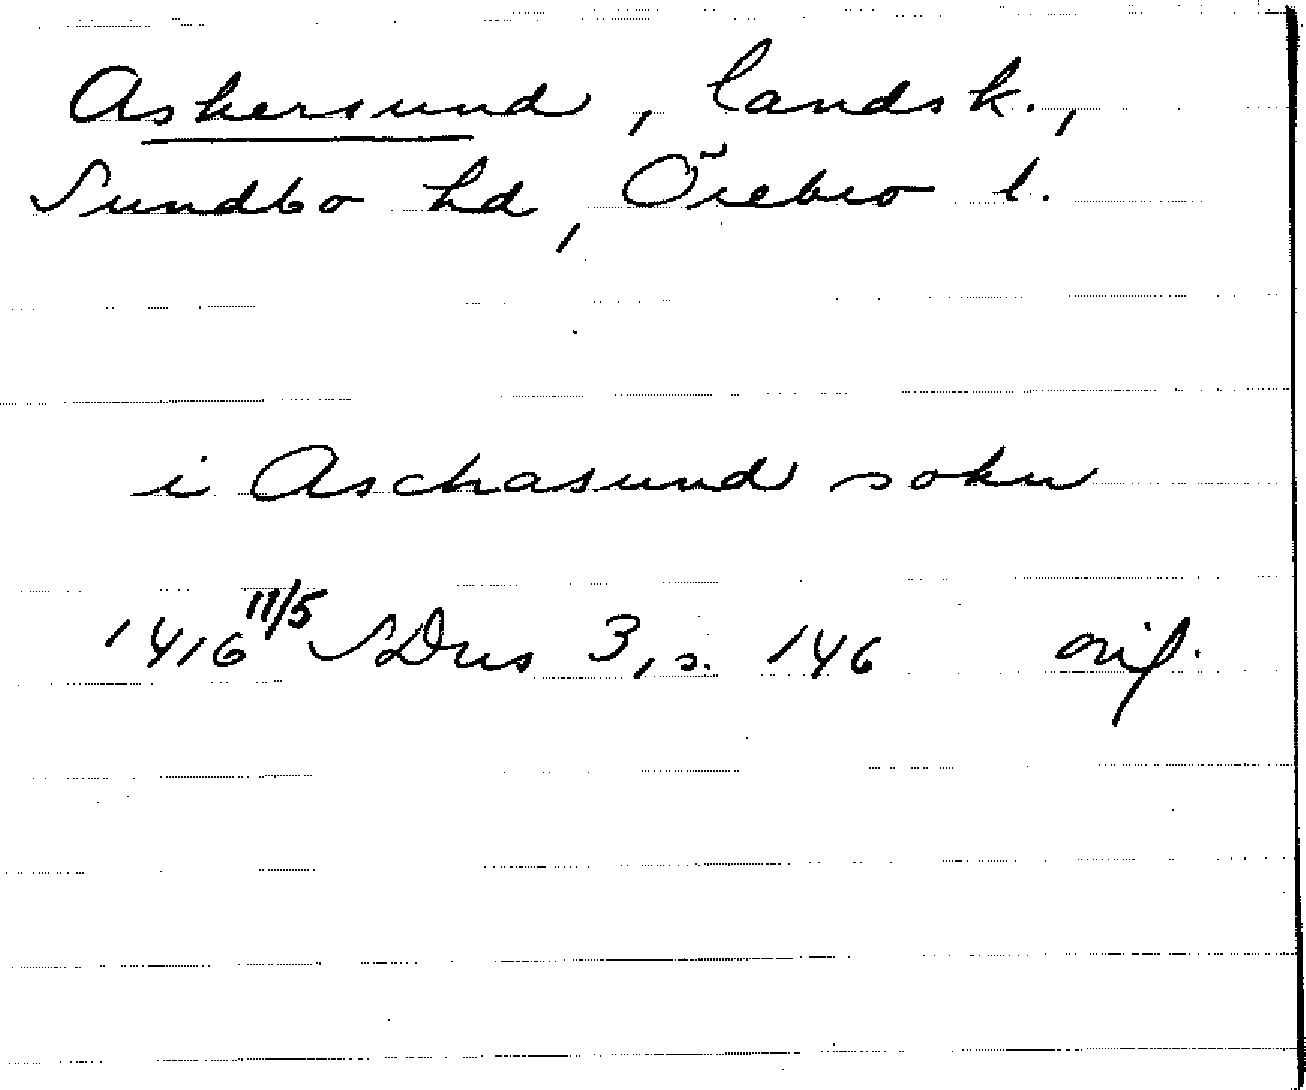 Askersund, landsk.,
Sundbo hd, Örebro l.
i Aschasund sokn
1416 11/5 SDns 3, s. 146 orig.